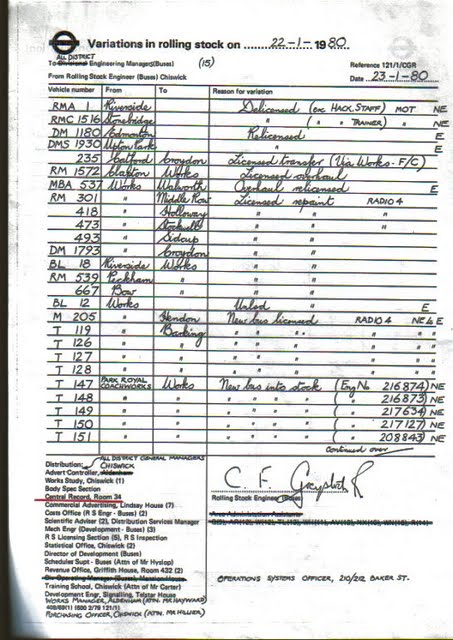 Variations in rolling stock on 22-1-1980
ALL DISTRICT
To Divisional Engineering Managers (Buses) (15) Reference 121/1/CGR
From Rolling Stock Engineer (Buses) Chiswick Date 23-1-80
Vehicle number From To Reason for variation
RMA 1 Riverside Delicensed (exc HACK. STAFF) MOT NE
RMC 1516 Stonebridge " ( " " TRAINER) " NE
DM 1180 Edmonton Relicensed E
DMS 1930 Upton Park " E
235 Catford Croydon Licensed transfer (Via Works - F/C)
RM 1572 Clapton Works Licensed overhaul
MBA 537 Works Walworth Overhaul relicensed E
RM 301 " Middle Row Licensed repaint RADIO 4
418 " Holloway " " "
473 " Stockwell " " "
493 " Sidcup " "
DM 1793 " Croydon " "
BL 18 Riverside Works " "
RM 539 Peckham " " "
667 Bow " " "
BL 12 Works Unlcd E
M 205 " Hendon New bus licensed RADIO 4 NE & E
T 119 " Barking " " " " "
T 126 " " " " " "
T 127 " " " " " "
T 128 " " " " " "
T 147 PARK ROYAL COACHWORKS Works New bus into stock (Eng No 216874) NE
T 148 " " " " " " ( " 216873) NE
T 149 " " " " " " ( " 217634) NE
T 150 " " " " " " ( " 217127) NE
T 151 " " " " " " ( " 208843) NE
Continued over
ALL DISTRICT GENERAL MANAGERS
Distribution: CHISWICK
Advert Controller, Aldenham (1)
Works Study, Chiswick (1)
Body Spec Section
Central Record, Room 34
Commercial Advertising, Lindsay House (7)
Costs Office (R S Engr - Buses) (2)
Scientific Adviser (2), Distribution Services Manager
Mech Engr (Development - Buses) (3)
RS Licensing Section (5), RS Inspection
Statistical Office, Chiswick (2)
Director of Development (Buses)
Schedules Supt - Buses (Attn of Mr Hyslop)
Revenue Office, Griffith House, Room 432 (2)
Training School, Chiswick (Attn of Mr Carter)
Development Engr, Signalling, Telstar House
WORKS MANAGER, ALDENHAM (ATTN. MR HAYWARD)
PURCHASING OFFICER, CHISWICK (ATTN. MR HILLIER)
Rolling Stock Engineer (Buses)
OPERATIONS SYSTEMS OFFICER, 210/212 BAKER ST.